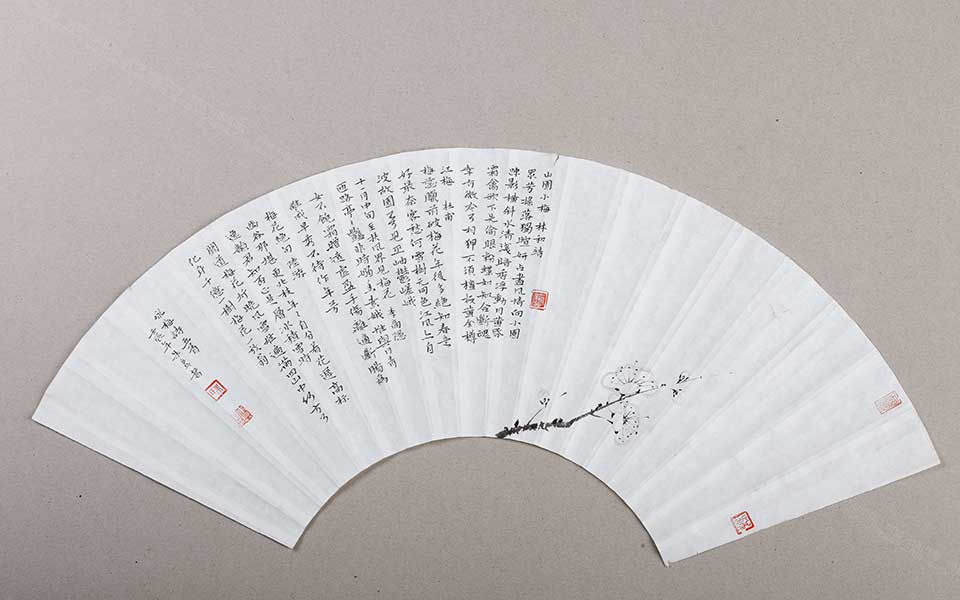 山園小梅 林和靖
眾芳搖落獨暄妍占盡風情向小園
疎影橫斜水清淺暗香浮動月黃昏
霜禽欲下先偷眼粉蝶如知合斷魂
幸有微吟可相狎不須檀板共金樽
江梅 杜甫
梅蕊臘前破梅花年後多絕知春意
好最奈客愁何雪樹元同色江風亦自
波故園不可見巫岫鬱嵯峨
十一月中旬至扶風界見梅花 李商隱
匝路亭亭艷非時裛裛香素娥惟與月青
女不饒霜贈遠虛盈手傷離適斷腸為
誰成早秀不待作年芳
梅花絕句 陸游
幽谷那堪更北枝年年自分著花遲高標
逸韻君知否正是層冰積雪時
聞道梅花坼曉風雪堆遍滿四山中何方可
化身千億一樹梅花一放翁